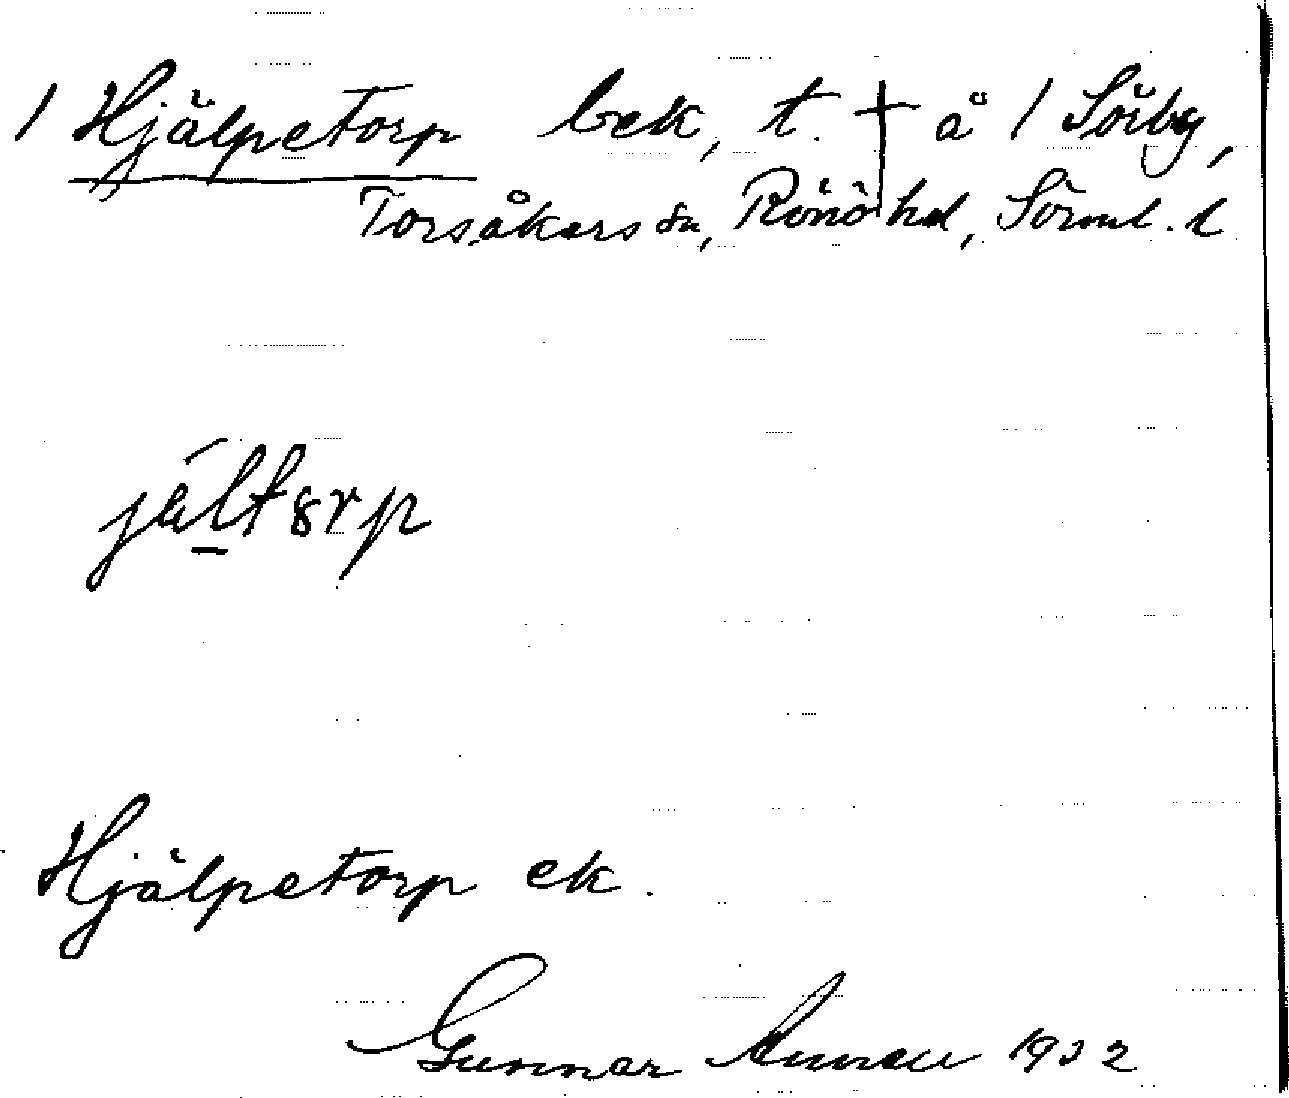 1 Hjälpetorp bek, t. † å 1 Sörby,
Torsåkers sn, Rönö hd, Sörml. l
jältorp
Hjälpetorp ek.
Gunnar 1932